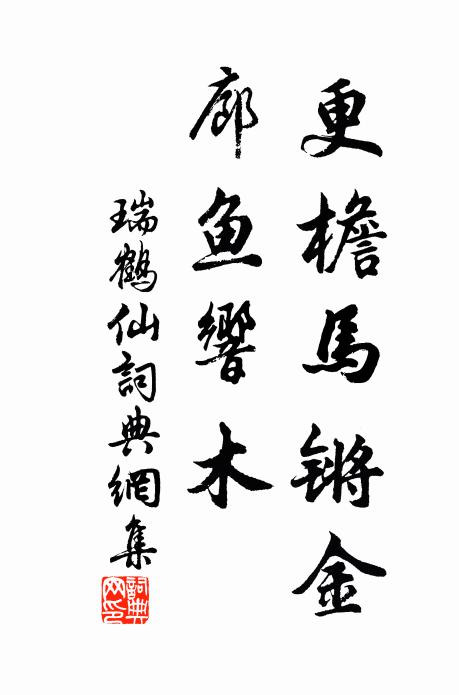 更檐馬锵金
廊鱼響木
瑞鶴仙詞典網集
詞典网印